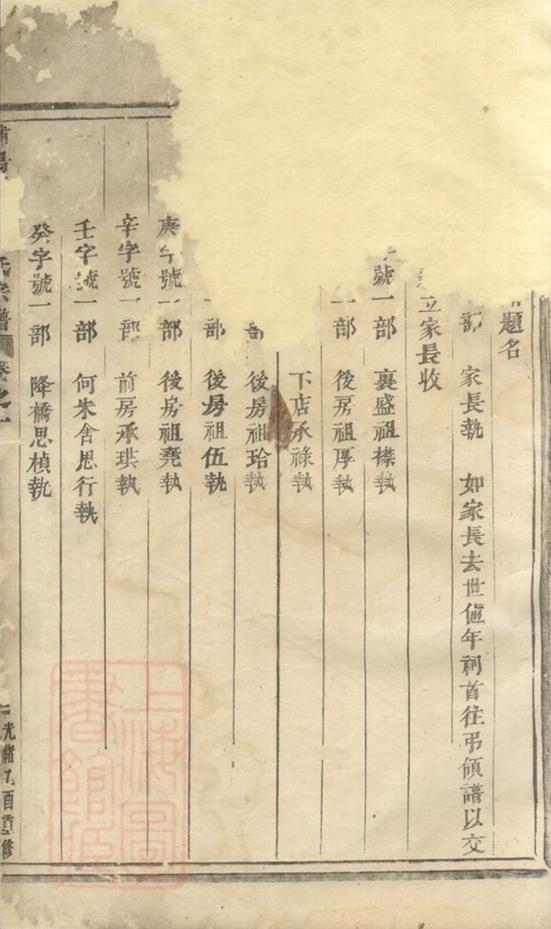 題名
部 家長執 如家長去世值年祠首往弔領譜以交
立家長收
號一部 襄盛祖檪執
一部 後房祖厚執
下店承祿執
部 後房祖珨執
部 後房祖伍執
庚字號一部 後房祖堯執
辛字號一部 前房承琪執
壬字號一部 何朱舍思行執
癸字號一部 降橋思楨執
氏宗譜 卷之一 光緒乙酉重修
上海圖書館藏